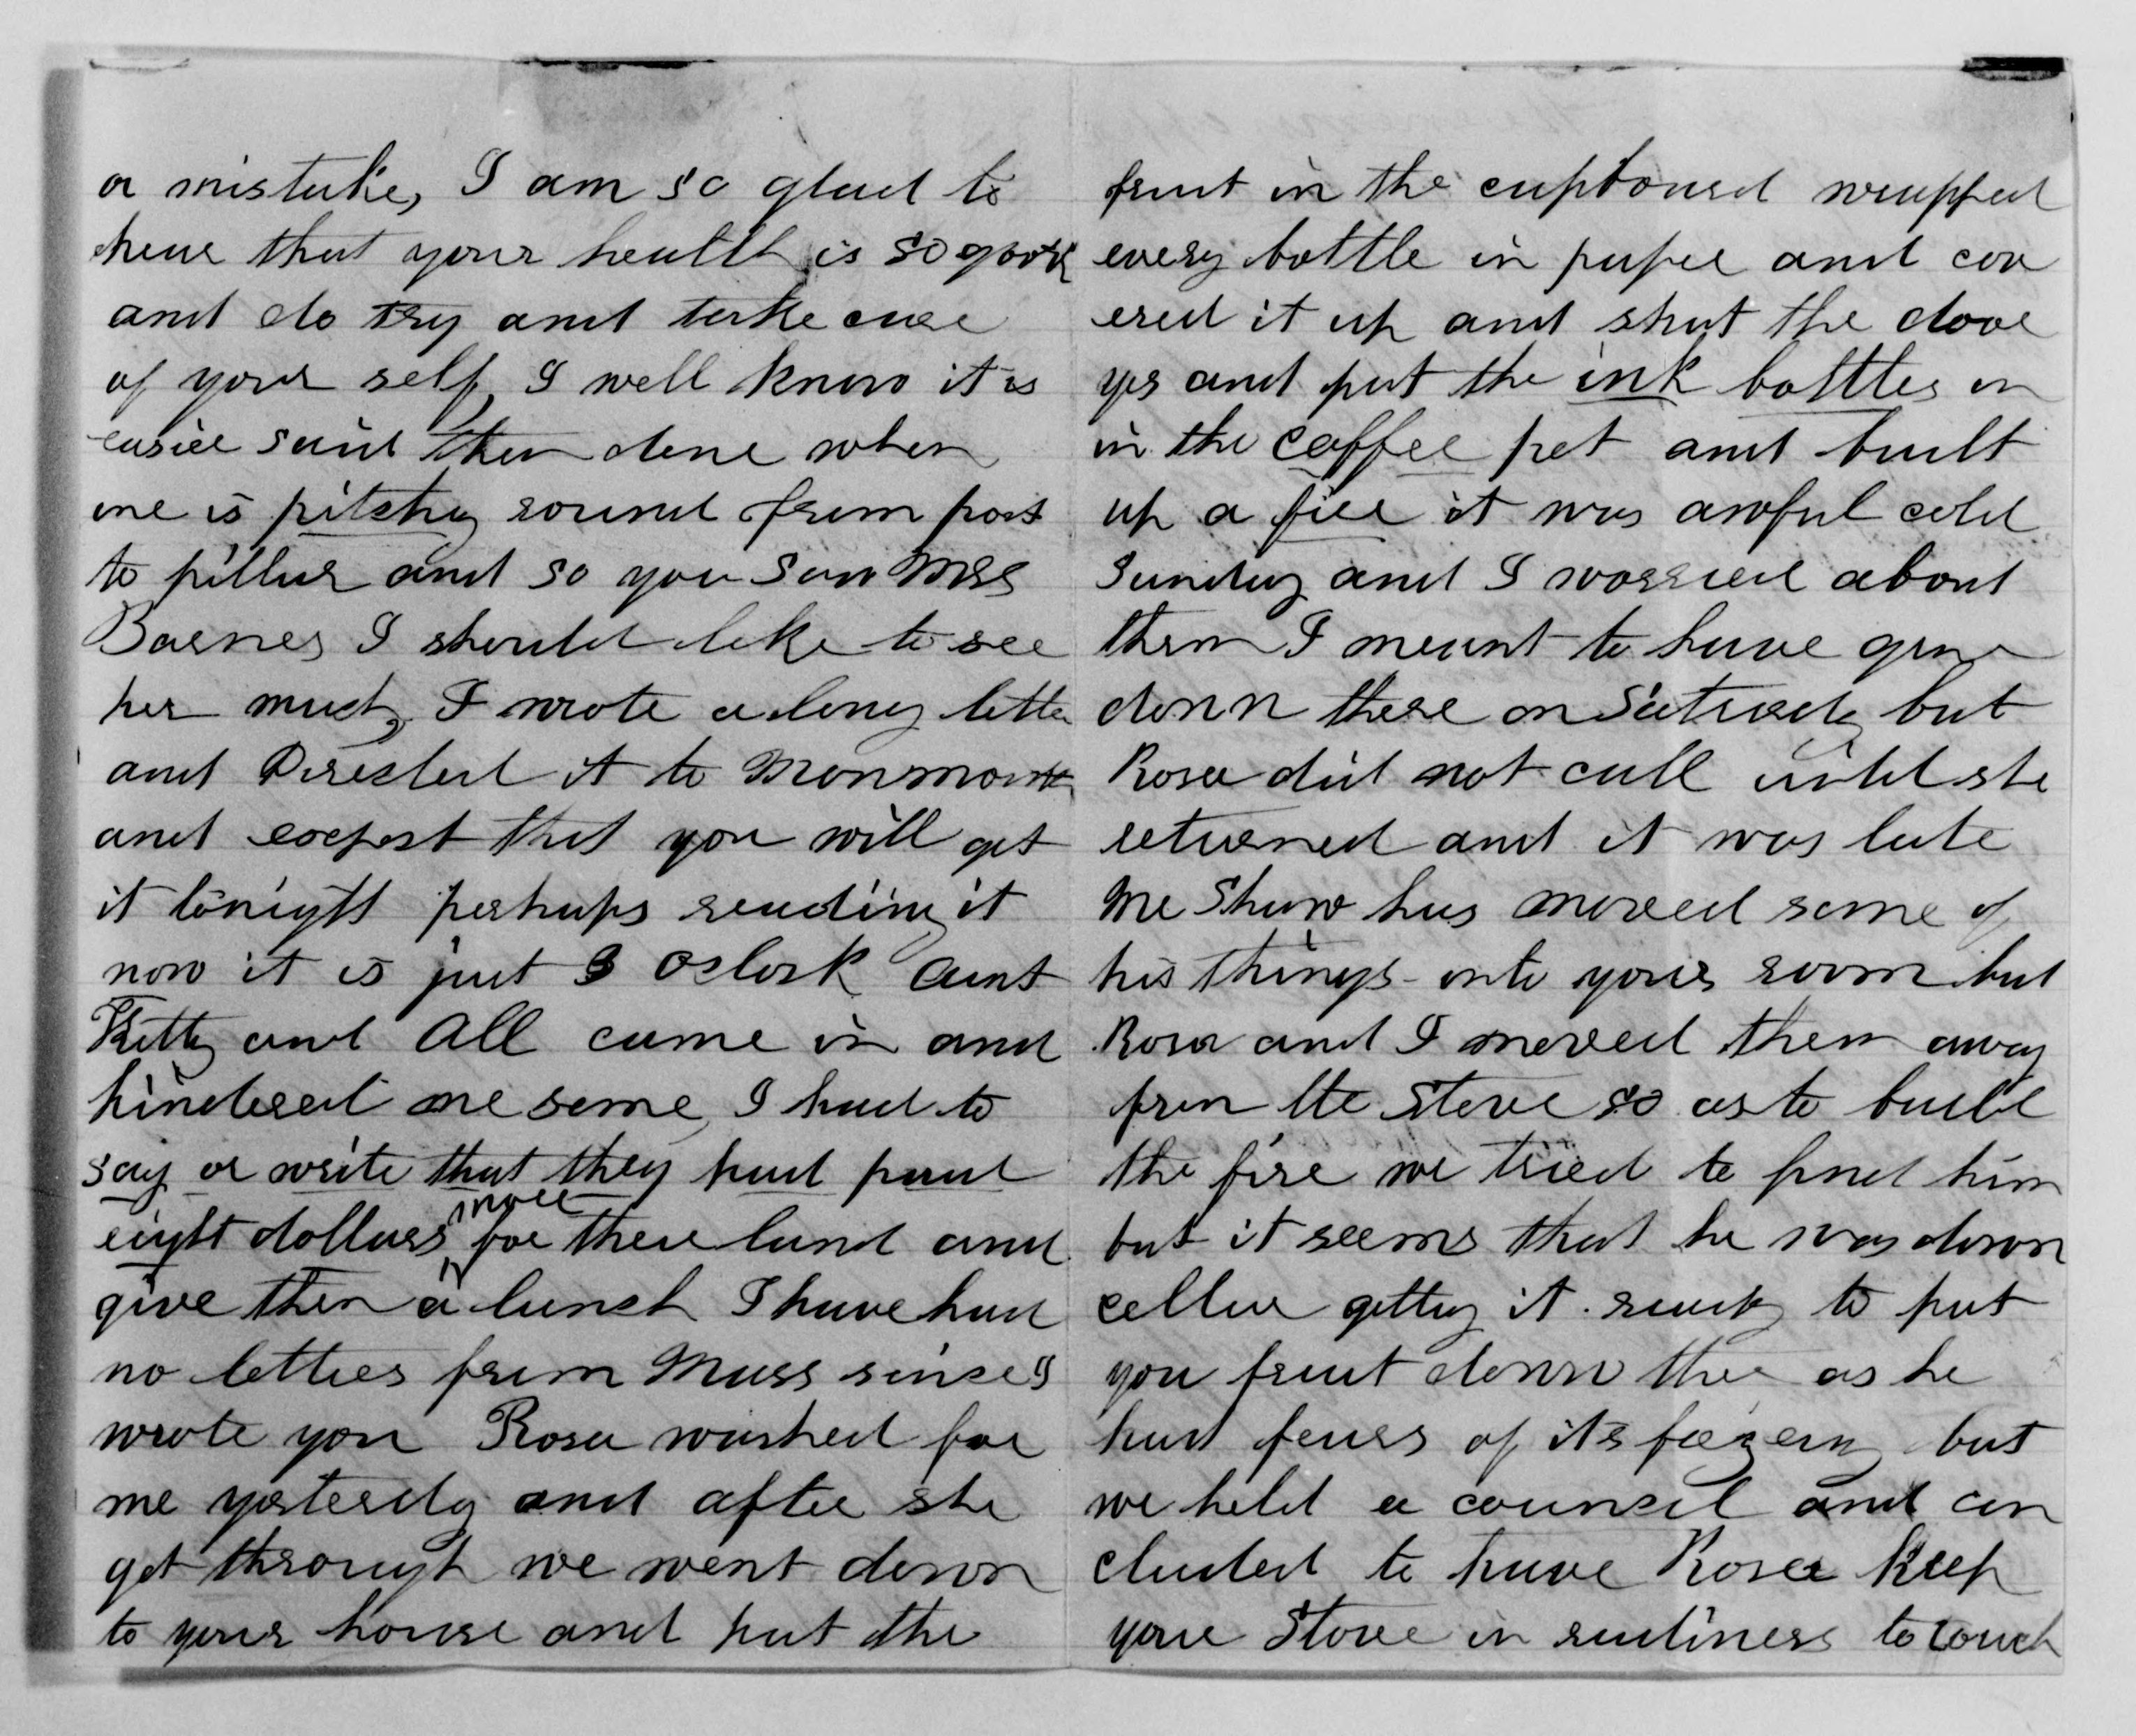 a mistake, I am so glad to
hear that your health is so good
and do try and take care
of your self, I well know it is
easier said then done when
one is pitchy round from post
to pillar and so you saw Mrs
Barnes I should like to see
her much, I wrote a long letter
and Directed it to Monmouth
and expect that you will get
it tonight perhaps reading it
now it is just 8 Oclock Aunt
Kitty and All came in and
hindered me some, I had to
say or write that they had paid
more
eight dollars for there land and
give them a lunch I have had
no letters from Mass since I
wrote you Rosa washed for
me yesterday and after she
got through we went down
to your house and put the
fruit in the cupboard wrapped
every bottle in paper and cov
ered it up and shut the door
yes and put the ink bottles in
in the coffee pot and built
up a fire it was awful cold
Sunday and I worried about
them I meant to have gone
down there on Saturday but
Rosa did not call until she
returned and it was late
Mr Shaw has moved some of
his things into your room but
Rosa and I moved them away
from the stove so as to build
the fire we tried to find him
but it seems that he was down
cellar getting it ready to put
you fruit down there as he
had fears of its freezeing but
we held a council and con
cluded to have Rosa keep
your stove in readiness to touch